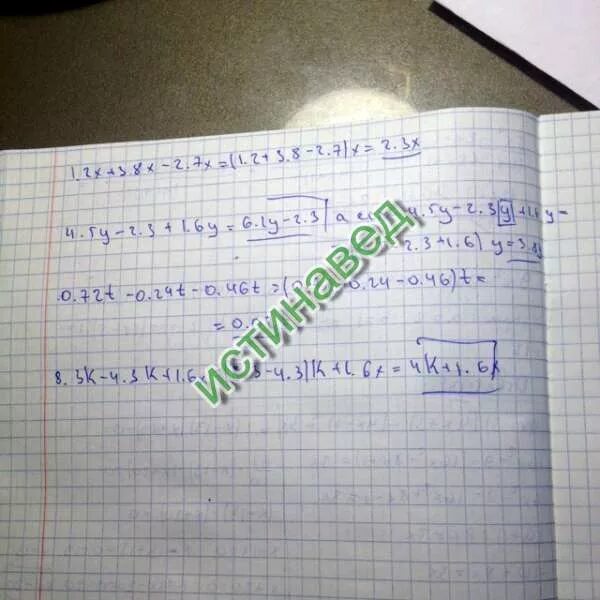 1.2x+3.8x-2.7x=(1.2+3.8-2.7)x=2.3x
4.5y-2.3+1.6y=6.1y-2.3 a 4.5y-2.3y+1.6y=
2.3+1.6) y=3.8y
0.72t-0.24t-0.46t=( 0.24-0.46)t=
=0.0
8.3k-4.3k+1.6x -4.3)k+1.6x=4k+1.6x
истинавед